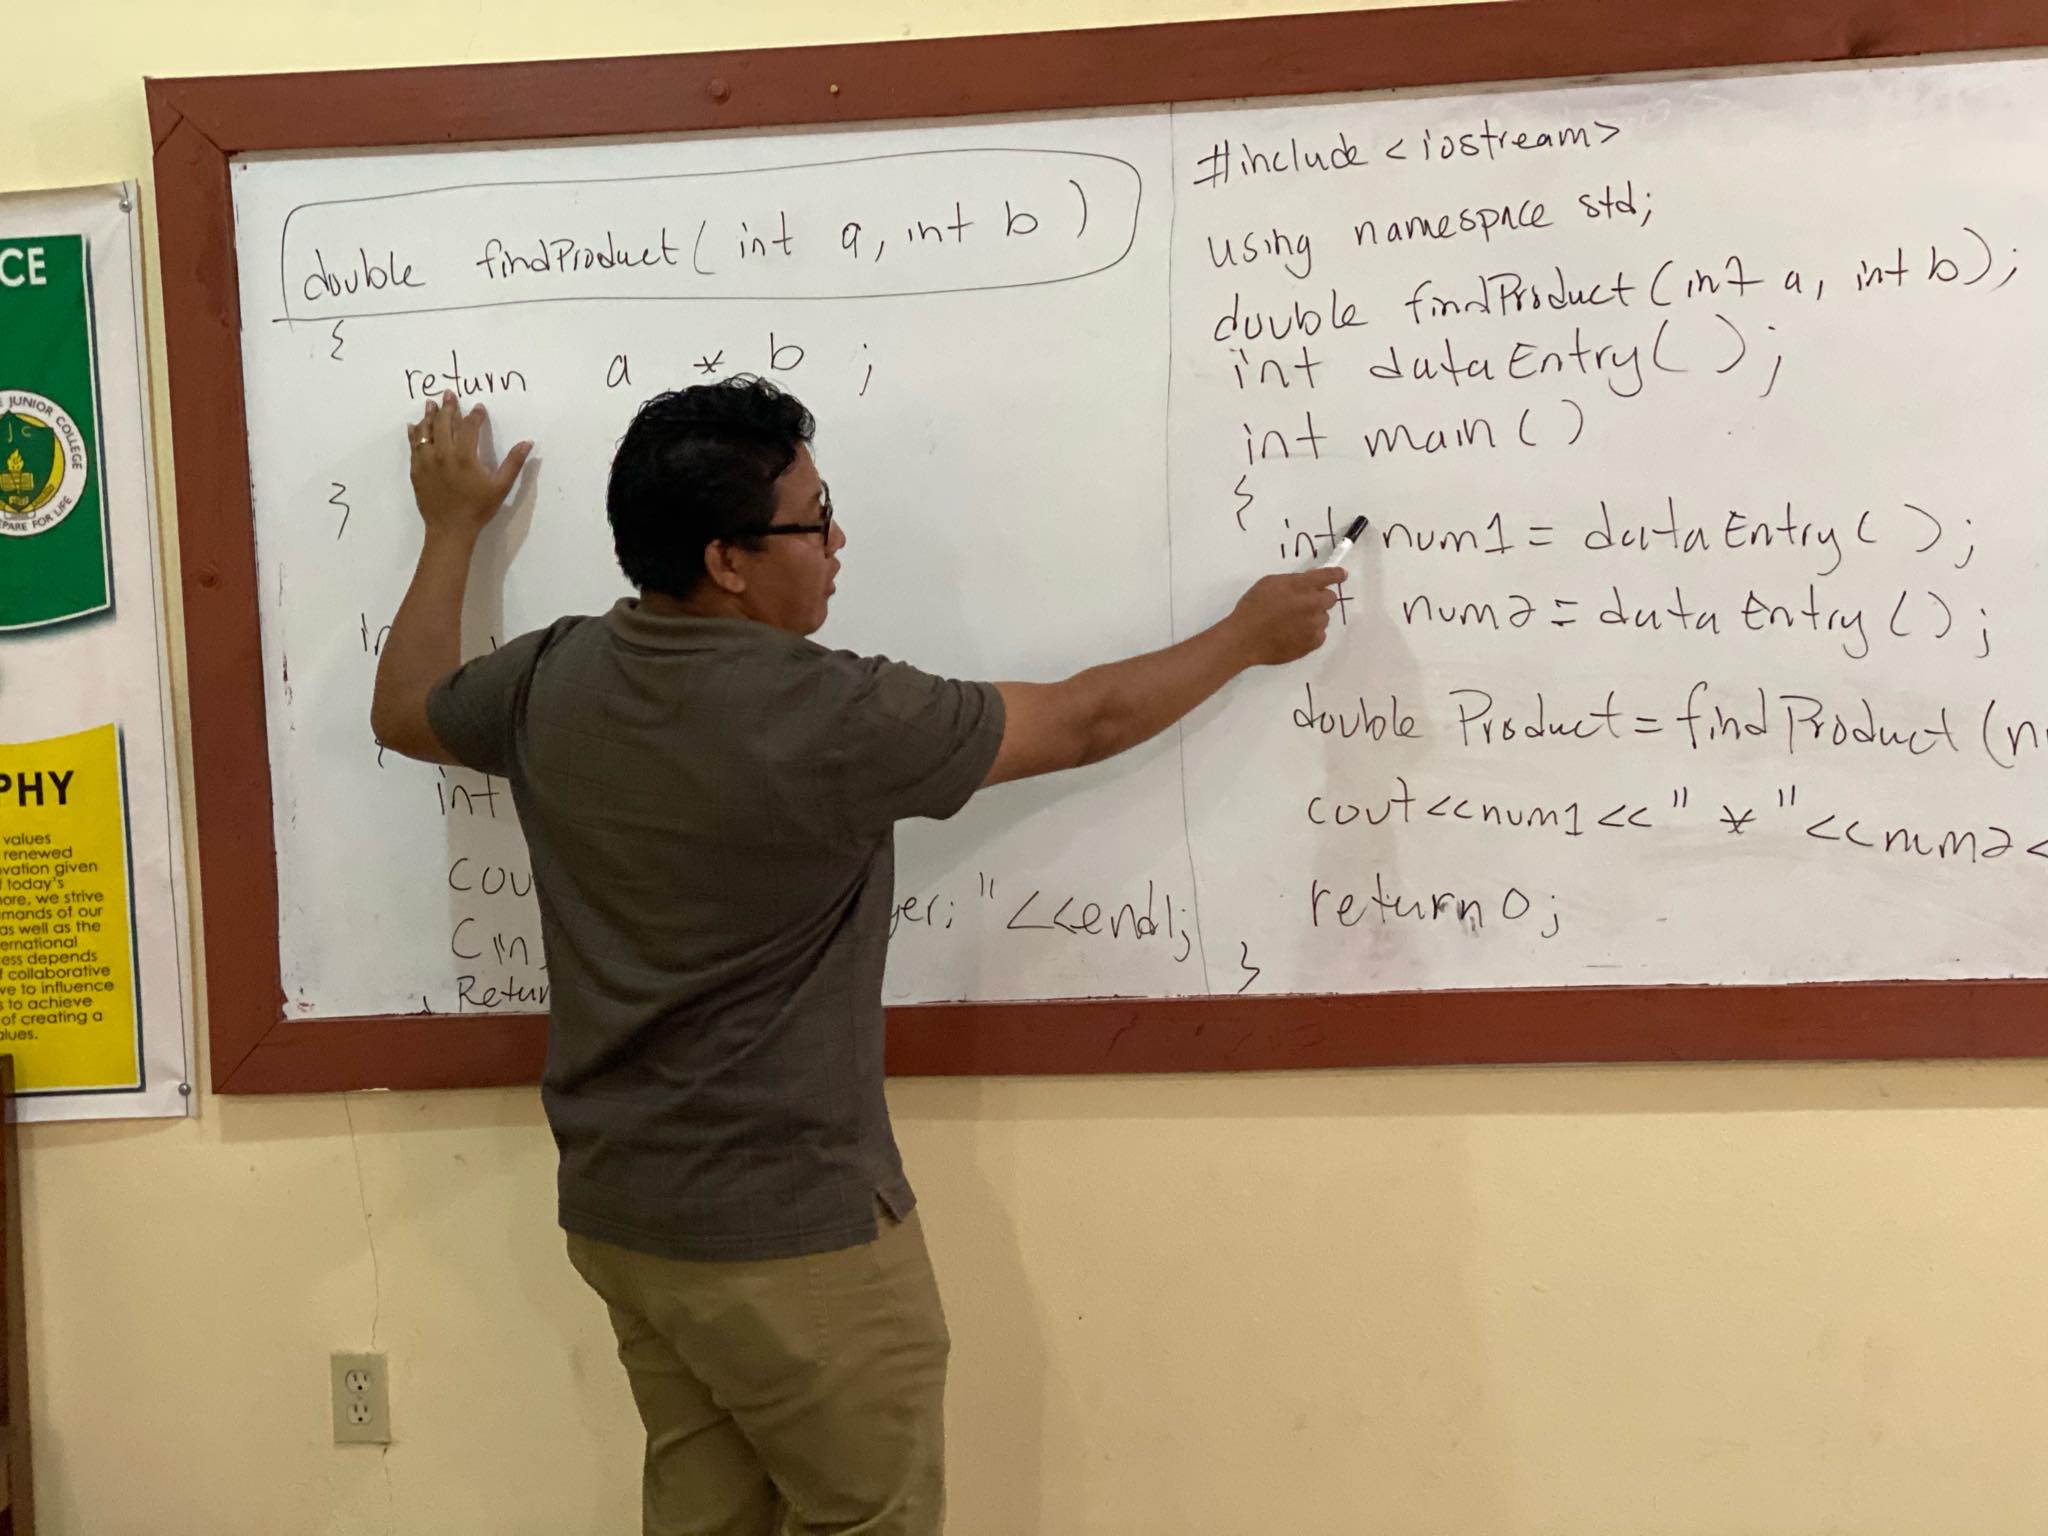 CE
JUNIOR COLLEGE
J C
PARE FOR LIFE
PHY
values
renewed
vation given
today's
ore, we strive
mands of our
as well as the
ernational
ess depends
f collaborative
ve to influence
s to achieve
of creating a
alues.
double findProduct( int a, int b )
{
return a * b ;
}
int
cou
yer; "<<endl;
Cin
Retur
#include <iostream>
using namespace std;
double findProduct(int a, int b);
int dataEntry( );
int main ( )
{
int num1 = dataEntry ( );
t num2 = dataEntry ( );
double Product = findProduct (n
cout<<num1 <<" * "<<num2 <
return 0;
}